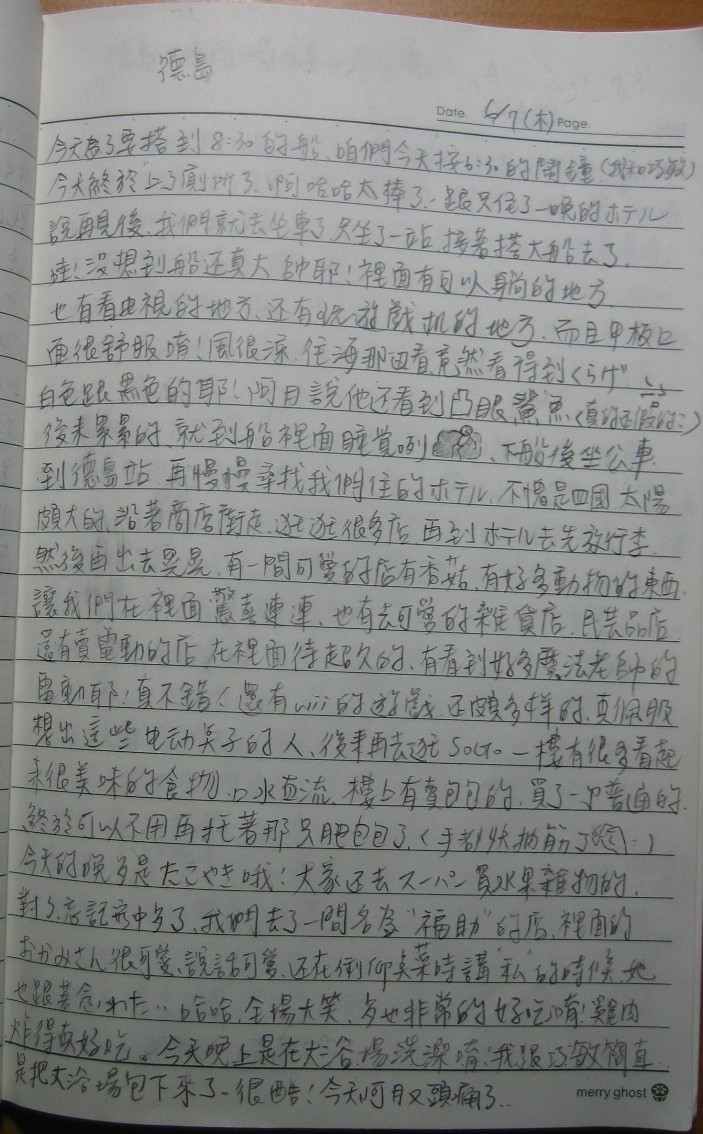 德島
Date. 6/7(木) Page.
今天為了要搭到8:30的船、咱們今天按6:30的鬧鐘(我和巧敏)
今天終於上了廁所了、啊哈哈太棒了、跟只住了一晚的ホテル
說再見後、我們就去坐車了只坐了一站接著搭大船去了、
哇!沒想到船还真大 帥耶!裡面有可以躺的地方
也有看电視的地方、还有玩游戲机的地方、而且甲板
面很舒服唷!風很涼、往海那迎看竟然看得到くらげ
白色跟黑色的耶!阿月說他还看到凸眼鯊魚(真的还假的:)
後来累累的就到船裡面睡覚咧、下船後坐公車
到德島站 再慢慢尋找我們住的ホテル、不愧是四國 太陽
頗大的、沿著商店街走、逛逛很多店 再到ホテル去先放行李
然後再出去晃晃、有一間可愛的店有香菇、有好多動物的東西、
讓我們在裡面驚喜連連、也有去可愛的雜貨店、民芸品店
還有賣電動的店 在裡面待超久的、有看到好多魔法老師的
電動耶!真不錯 還有wii的遊戲、还頗多样的、真佩服
想出這些电动英子的人、後来再去逛SOGO 一樓有很多看起
来很美味的食物、口水直流、樓上有賣包包的、買了一个普通的、
終於可以不用再托著那只肥包包了、(手都快抽筋了:)
今天的晚歺是たこやき哦!大家还去スーパー買水果雜物的、
對了、忘記寫中歺了、我們去了一間名為"福助"的店、裡面的
おかみさん很可愛、說話可愛、还在倒菜時講"私"的時候、她
也跟著念わた… 哈哈、全場大笑、歺也非常的好吃唷!雞肉
炸得真好吃。今天晚上是在大浴場洗澡唷!我跟巧敏簡直
是把大浴場包下来了、很酷!今天阿月又頭痛了..
merry ghost